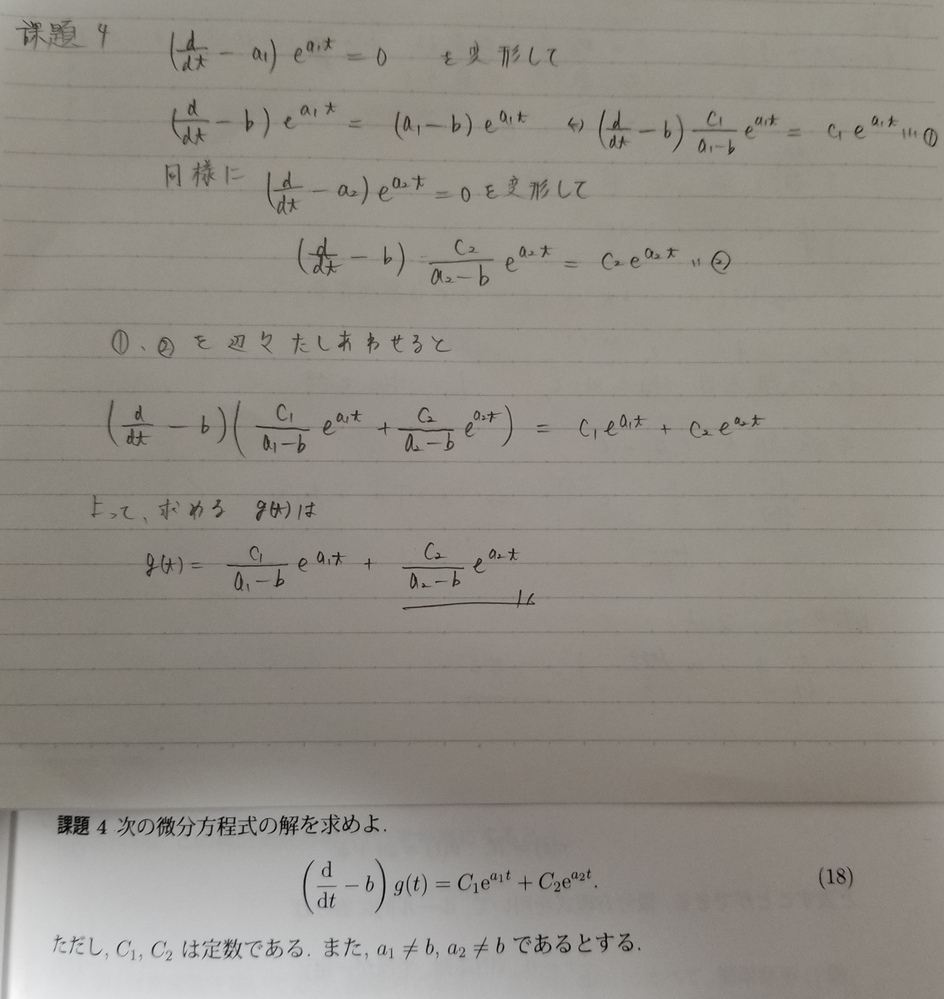 課題 4 (d/dt - a₁) e^{a₁t} = 0 を変形して
(d/dt - b) e^{a₁t} = (a₁-b) e^{a₁t} ⇔ (d/dt - b) C₁/(a₁-b) e^{a₁t} = C₁ e^{a₁t} … ①
同様に (d/dt - a₂) e^{a₂t} = 0 を変形して
(d/dt - b) C₂/(a₂-b) e^{a₂t} = C₂ e^{a₂t} … ②
①、② を辺々たしあわせると
(d/dt - b) (C₁/(a₁-b) e^{a₁t} + C₂/(a₂-b) e^{a₂t}) = C₁e^{a₁t} + C₂e^{a₂t}
よって、求める g(t)は
g(t) = C₁/(a₁-b) e^{a₁t} + C₂/(a₂-b) e^{a₂t}
課題 4 次の微分方程式の解を求めよ.
(d/dt - b) g(t) = C₁e^{a₁t} + C₂e^{a₂t}. (18)
ただし, C₁, C₂ は定数である. また, a₁ ≠ b, a₂ ≠ b であるとする.